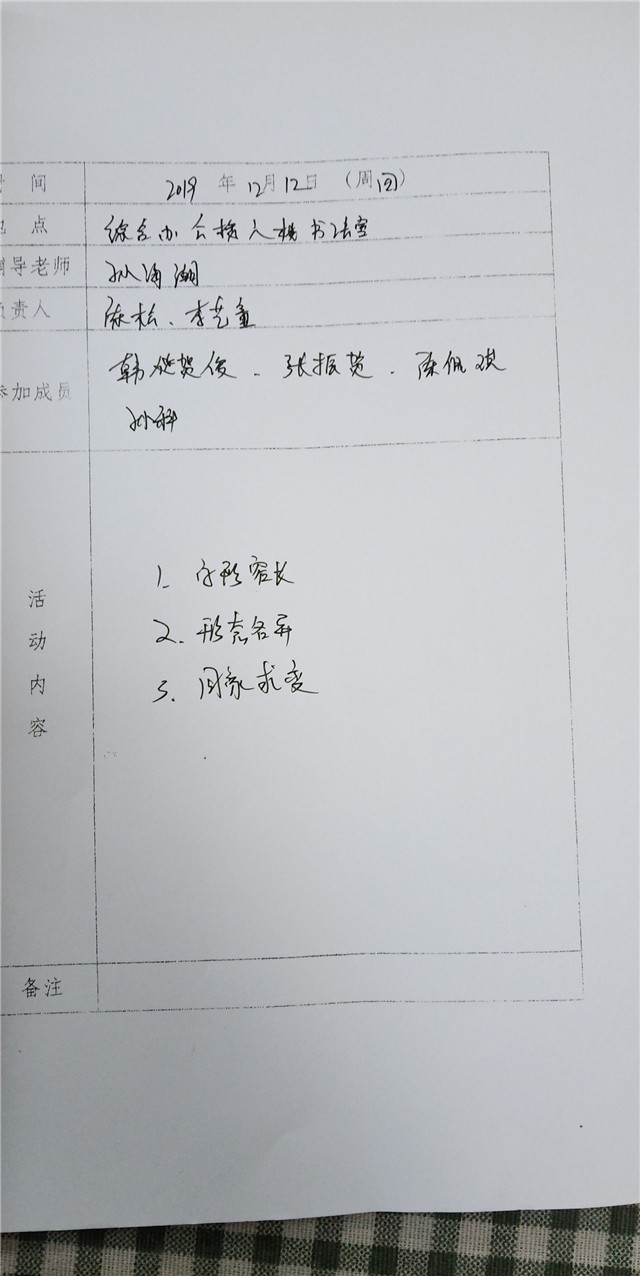 间 2019 年 12月 12日 (周四)
点 综合办公楼八楼书法室
辅导老师 孙海潮
负责人 陈松、李艺童
参加成员 韩 贺俊、张振英、陈佩琪
孙
活动内容
1. 字形窄长
2. 形态各异
3. 同象求变
备注